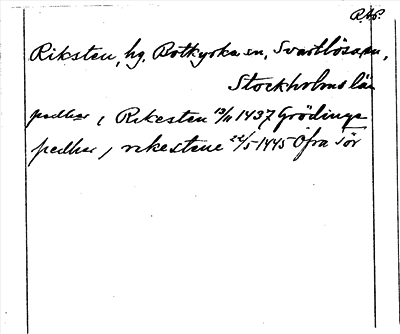 RAP.
Riksten, hg. Botkyrka sn, Svartlösa hd,
Stockholms län
pedher, Rikesten 13/11 1437 Grödinge
pedher, rikestene 22/5 1445 Öfra Tör